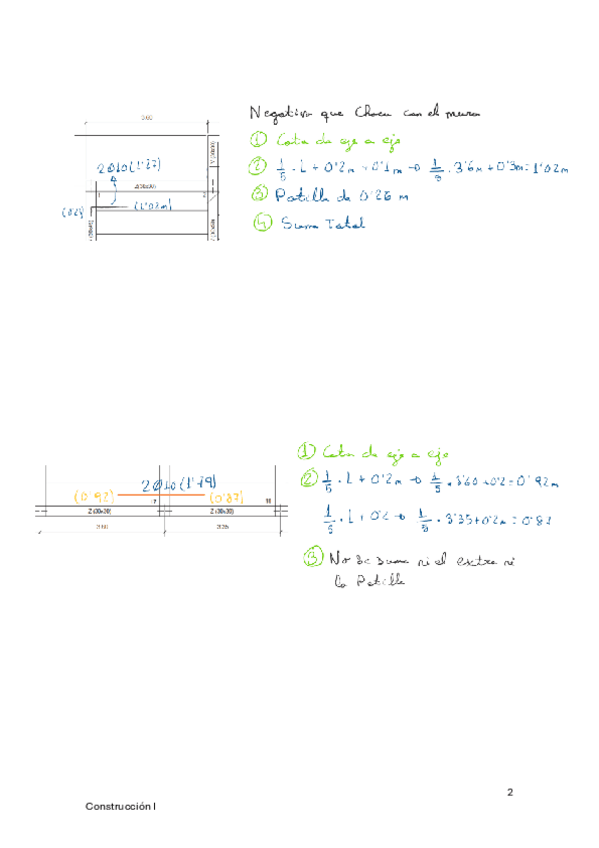 Negativo que Choca con el muro
3.60
① Cota de eje a eje
2Ø10(1'27)
② 1/5 · L + 0'2m + 0'1m → 1/5 · 3'6m + 0'3m = 1'02m
Z(30x30)
③ Patilla de 0'26 m
(1'02m)
④ Suma Total
① Cota de eje a eje
② 1/5 · L + 0'2m → 1/5 · 3'60 + 0'2 = 0'92m
2Ø10(1'79)
(0'92)
(0'87)
17
18
Z (30x30)
Z (30x30)
1/5 · L + 0'2 → 1/5 · 3'35 + 0'2m = 0'87
3.60
3.35
③ No se suma ni el extra ni
la Patilla
2
Construcción I